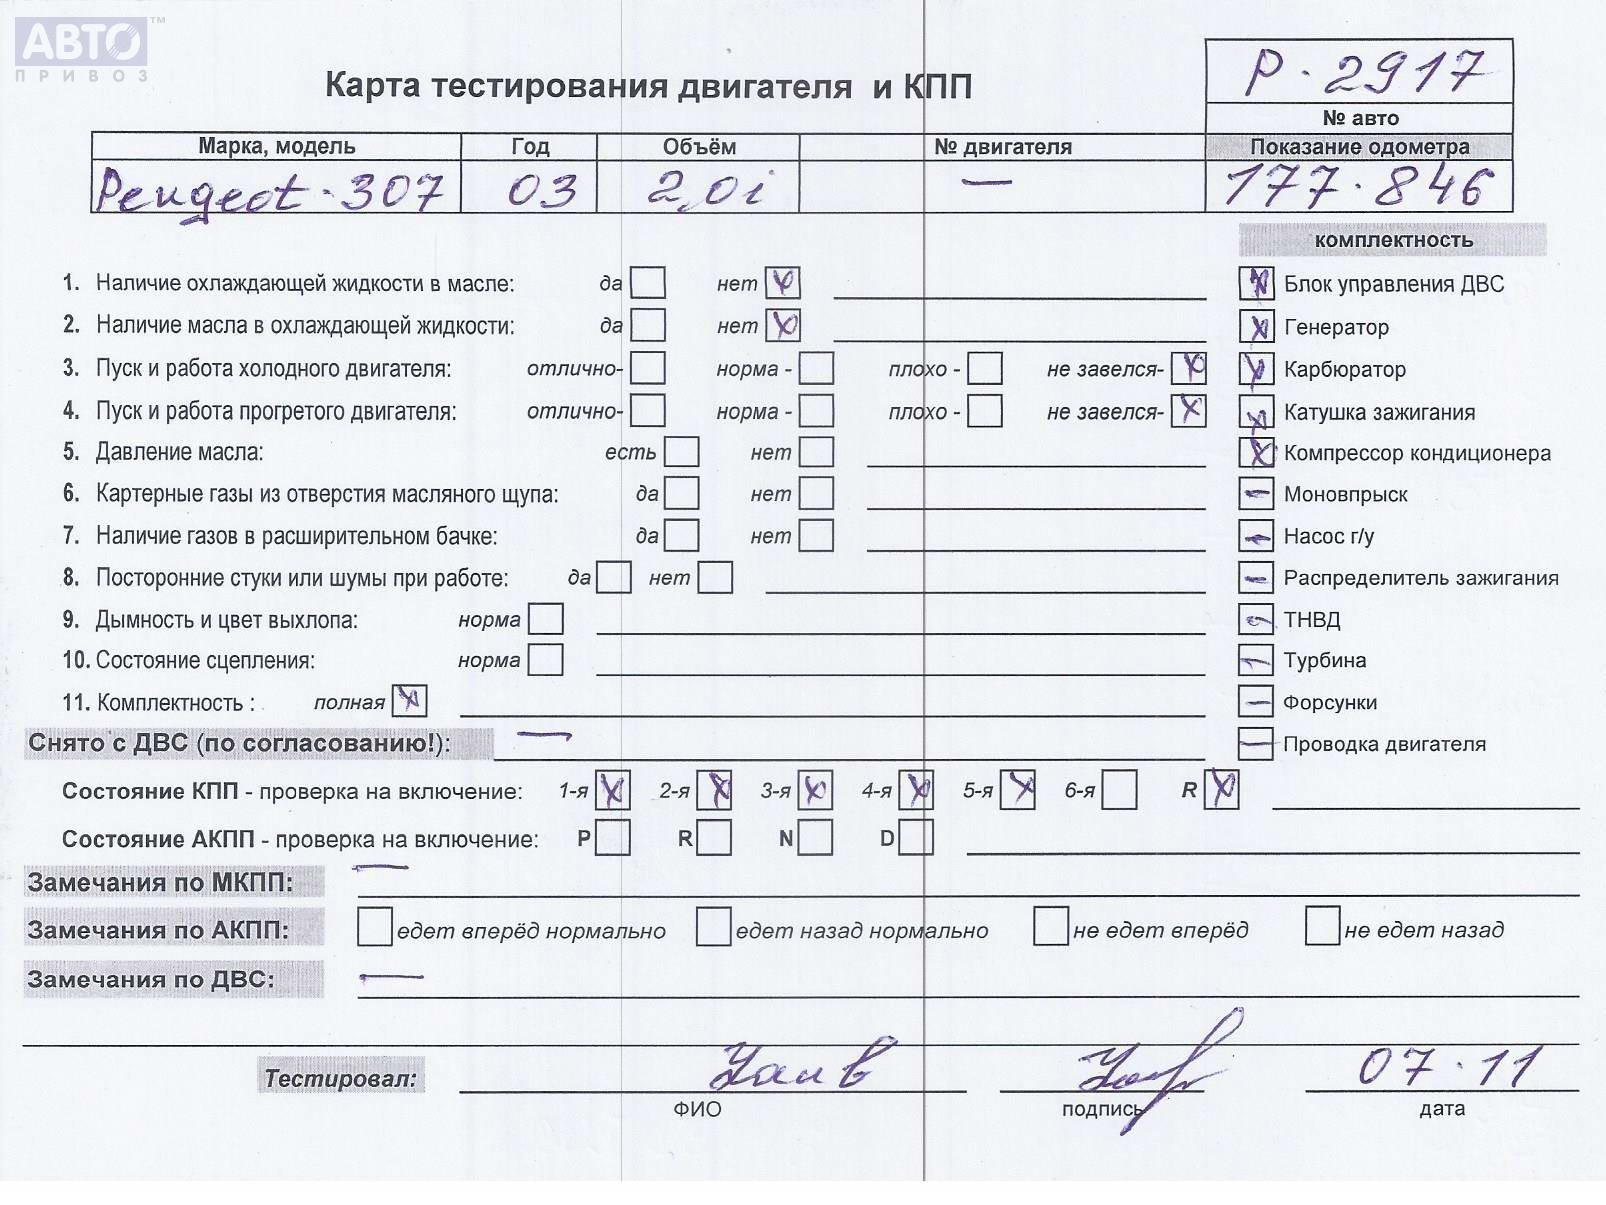 АВТО™
ПРИВОЗ
Карта тестирования двигателя и КПП
P·2917
№ авто
Марка, модель Год Объём № двигателя Показание одометра
Peugeot·307 03 2,0i — 177·846
комплектность
1. Наличие охлаждающей жидкости в масле: да нет Блок управления ДВС
2. Наличие масла в охлаждающей жидкости: да нет Генератор
3. Пуск и работа холодного двигателя: отлично- норма - плохо - не завелся- Карбюратор
4. Пуск и работа прогретого двигателя: отлично- норма - плохо - не завелся- Катушка зажигания
5. Давление масла: есть нет Компрессор кондиционера
6. Картерные газы из отверстия масляного щупа: да нет Моновпрыск
7. Наличие газов в расширительном бачке: да нет Насос г/у
8. Посторонние стуки или шумы при работе: да нет Распределитель зажигания
9. Дымность и цвет выхлопа: норма ТНВД
10. Состояние сцепления: норма Турбина
11. Комплектность : полная Форсунки
Снято с ДВС (по согласованию!): — Проводка двигателя
Состояние КПП - проверка на включение: 1-я 2-я 3-я 4-я 5-я 6-я R
Состояние АКПП - проверка на включение: P R N D
Замечания по МКПП: —
Замечания по АКПП: едет вперёд нормально едет назад нормально не едет вперёд не едет назад
Замечания по ДВС: —
Тестировал: 07·11
ФИО подпись дата